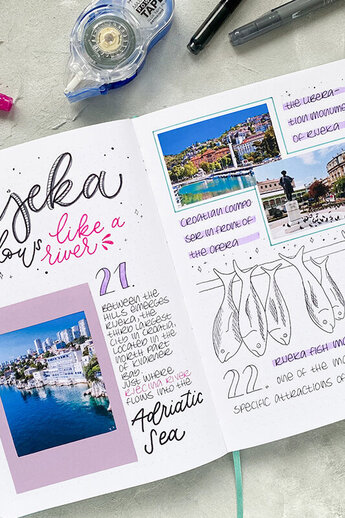 TAPE
jeka
lows like a
river
21.
BETWEEN THE
HILLS EMERGES
RIJEKA, THE
THIRD LARGEST
CITY IN CROATIA,
LOCATED IN THE
NORTH PART
OF KVARNER
BAY.
JUST WHERE
RJECINA RIVER
FLOWS INTO THE
Adriatic
Sea
THE LIBERA-
TION MONUMEN
OF RIJEKA
CROATIAN COMPO
SER IN FRONT OF
THE OPERA
RIJEKA FISH MA
22. ONE OF THE MO
SPECIFIC ATTRACTIONS OF